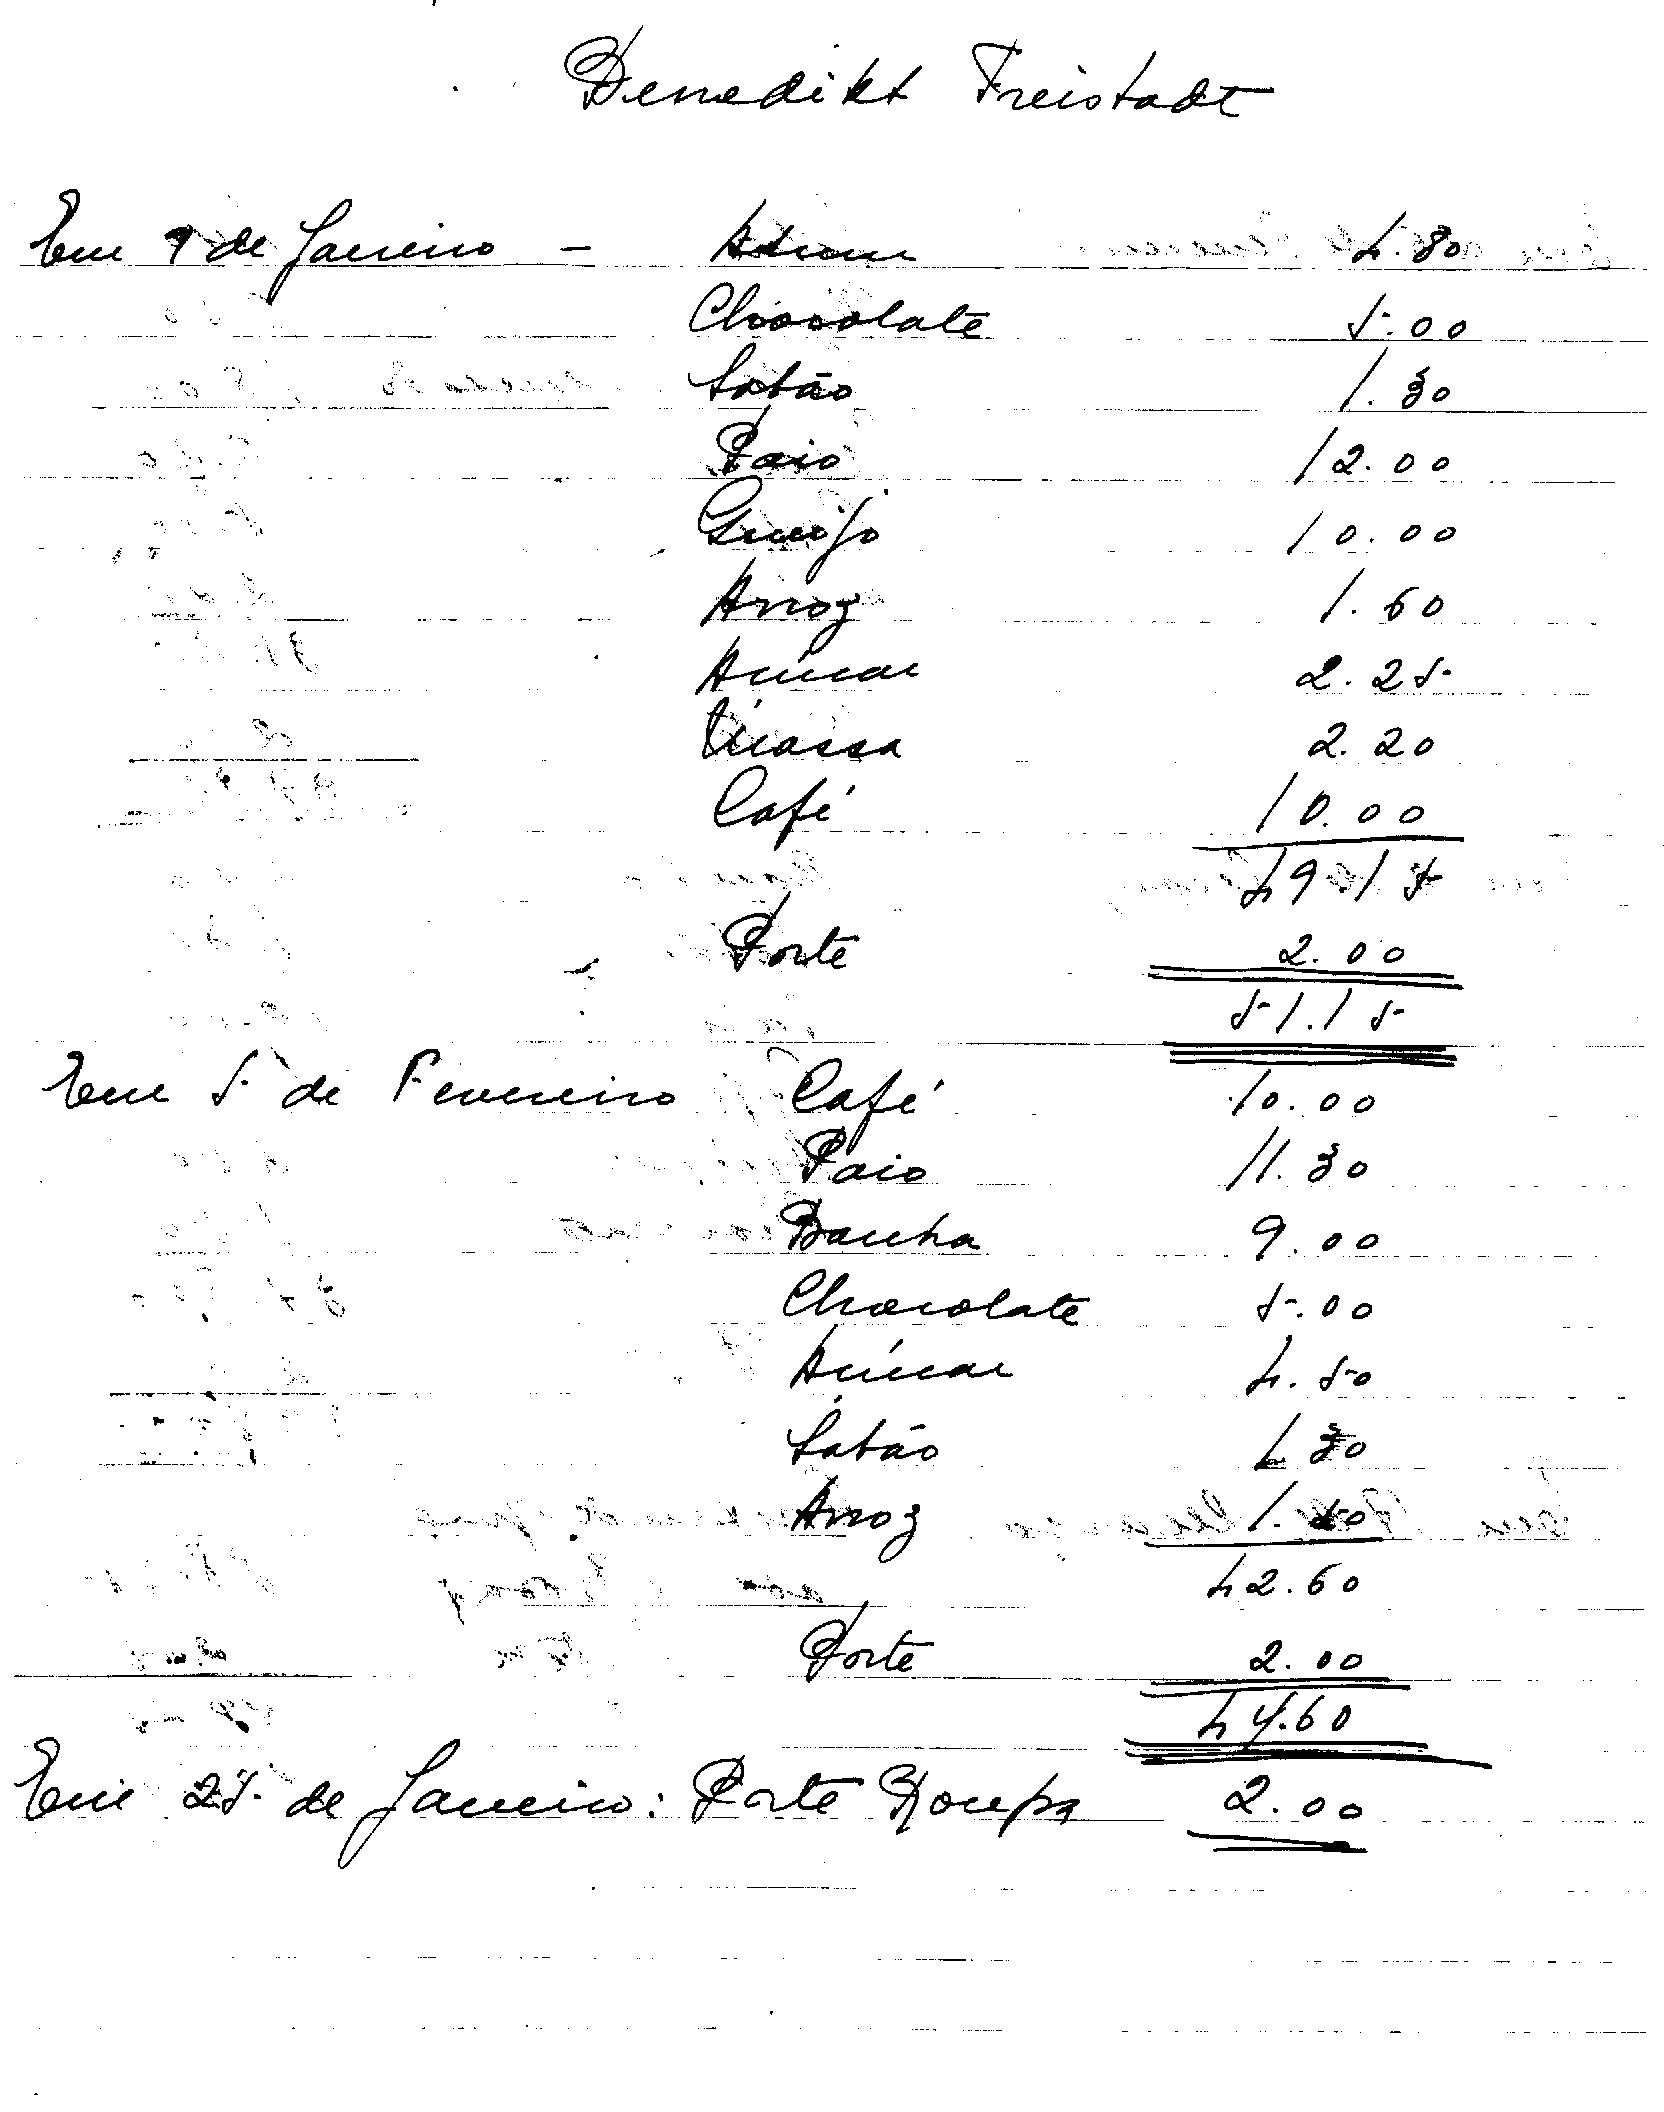 Benedikt Freistadt
Em 9 de Janeiro – Atum 4.80
Chocolate 5.00
Sabão 1.30
Paio 12.00
Queijo 10.00
Arroz 1.60
Açúcar 2.25
Massa 2.20
Café 10.00
49.15
Porte 2.00
51.15
Em 5 de Fevereiro Café 10.00
Paio 11.30
Banha 9.00
Chocolate 5.00
Açúcar 4.50
Sabão 1.30
Arroz 1.50
42.60
Porte 2.00
44.60
Em 25 de Janeiro: Porte Roupa 2.00